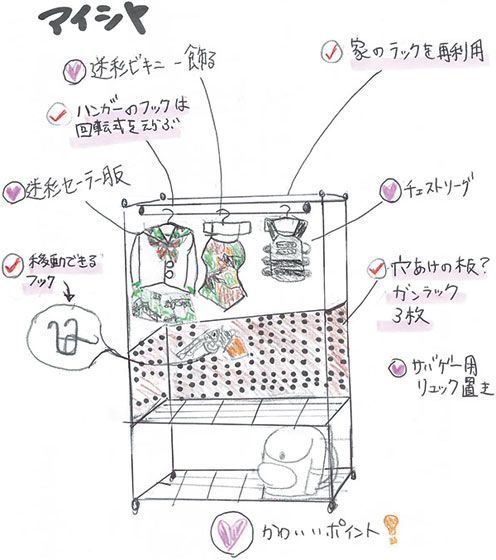 アイシャ
迷彩ビキニー飾る
家のラックを再利用
ハンガーのフックは
回転式をえらぶ
迷彩セーラー服
チェストリーグ
移動できる
フック
穴あけの板?
ガンラック
3枚
サバゲー用
リュック置き
かわいいポイント!